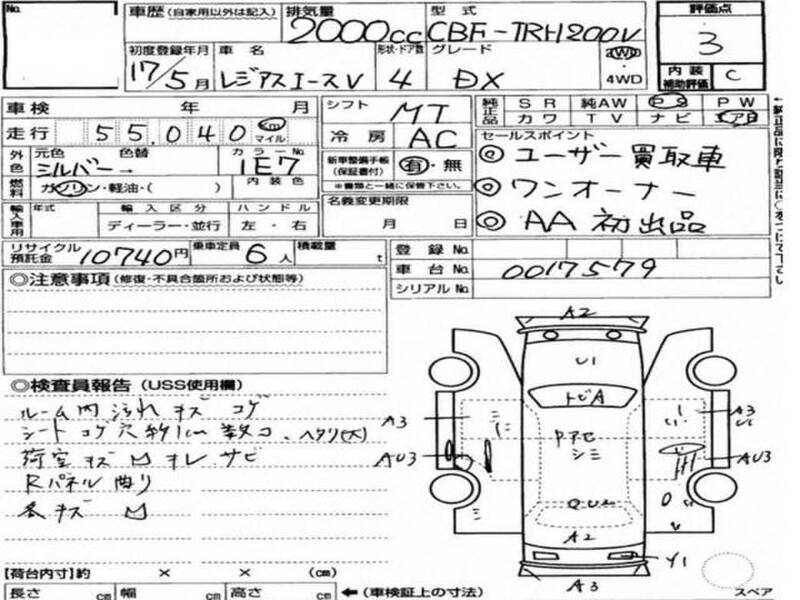 No.
車歴 (自家用以外は記入)
排気量 2000cc
型式 CBF-TRH200V
評価点
3
初度登録年月 17/5月
車名 レジアスエースV
形状・ドア数 4
グレード DX
2WD
4WD
内装補助評価 C
車検 年 月
シフト MT
純正品 SR 純AW PS PW
カワ TV ナビ エアB
走行 55,040 km マイル
冷房 AC
セールスポイント
◎ユーザー買取車
◎ワンオーナー
◎AA初出品
外色 元色 色替 シルバー→
カラーNo. 1E7
新車整備手帳(保証書付) 有・無
※書類と一緒に保管下さい。
燃料 ガソリン・軽油・( )
内装色
名義変更期限
月 日
輸入車用 年式 輸入区分 ハンドル
ディーラー・並行 左・右
リサイクル預託金 10740円
乗車定員 6人
積載量 t
登録No.
車台No. 0017579
シリアルNo.
◎注意事項 (修復・不具合箇所および状態等)
◎検査員報告 (USS使用欄)
ルーム内 汚れ キズ コゲ
シート コゲ穴 約1cm 数コ、ヘタリ(大)
荷室 キズ 凹 オレ サビ
Rパネル 曲り
各キズ 凹
A2
U1
トビA
A3
A3
AU3
AU3
シミ
A2
Y1
A3
スペア
【荷台内寸】約 × × (cm)
長さ cm 幅 cm 高さ cm ←(車検証上の寸法)